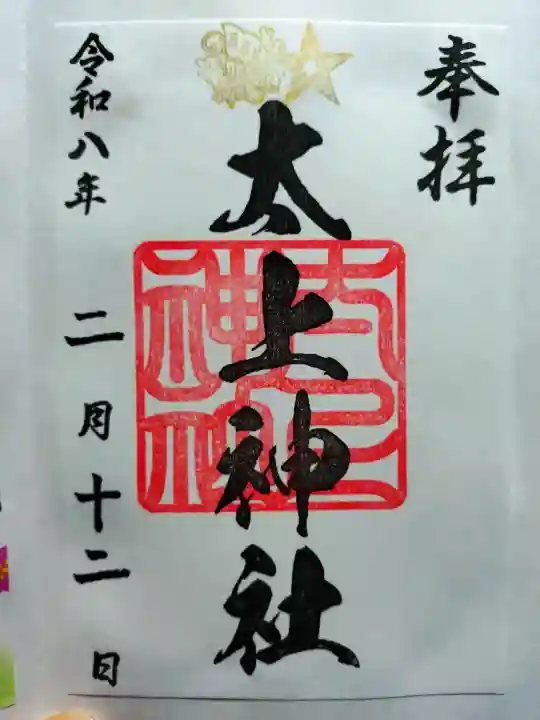 奉拝
太上神社
令和八年二月十二日